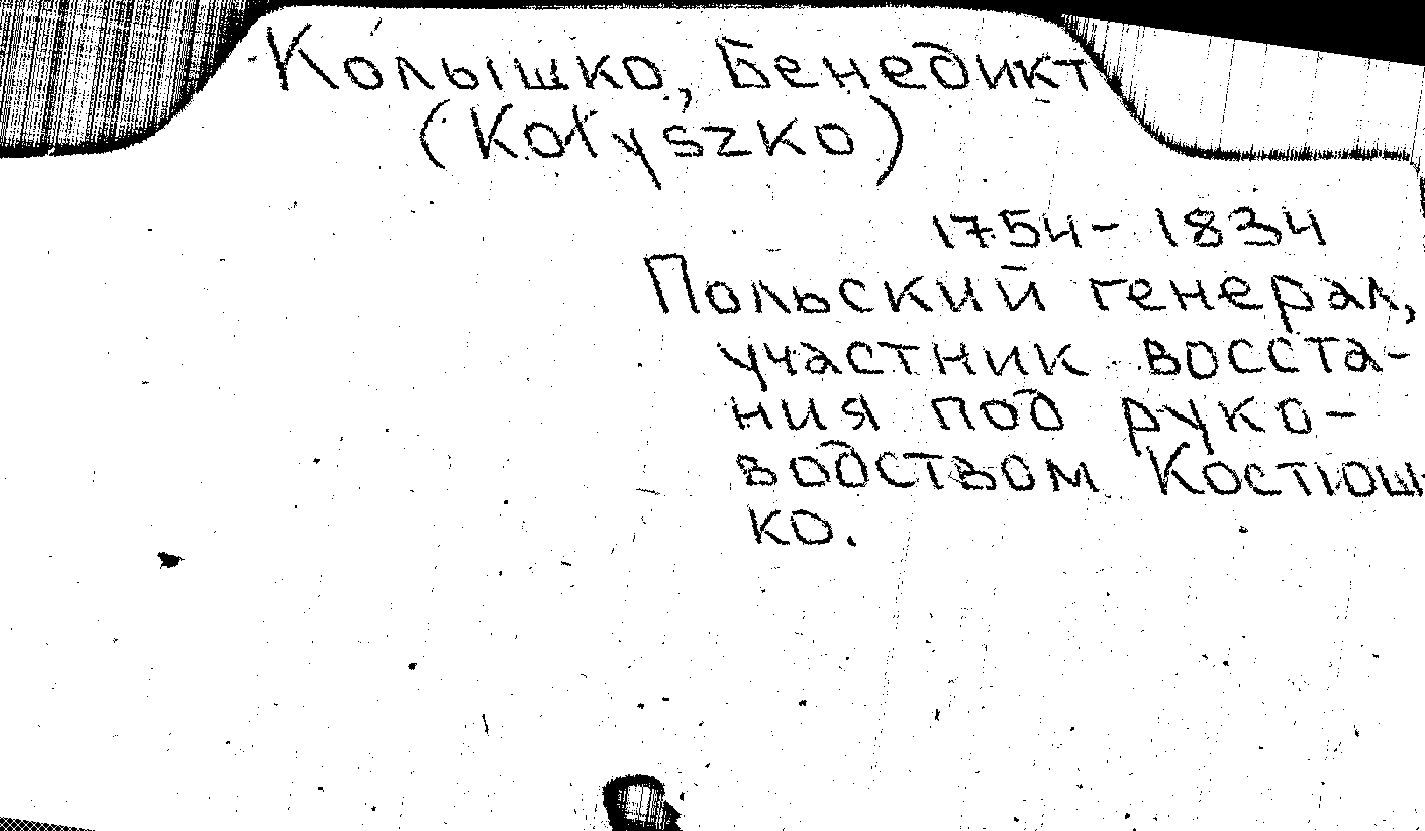 Колышко, Бенедикт
(Kołyszko)
1754- 1834
Польский генерал,
участник восста-
ния под руко-
водством Костюш-
ко.